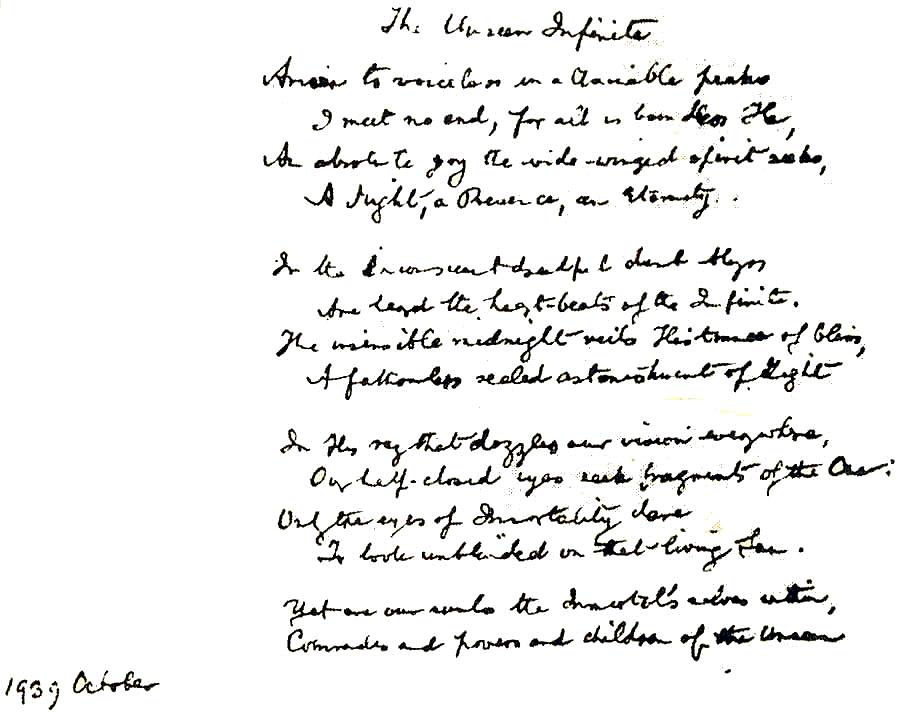 The Unseen Infinite
Arisen to voiceless unattainable peaks
I meet no end, for all is boundless He,
An absolute joy the wide-winged spirit seeks,
A Might, a Presence, an Eternity.
In the inconscient dreadful dumb Abyss
Are heard the heart-beats of the Infinite.
The insensible midnight veils His trance of bliss,
A fathomless sealed astonishment of Light
In His ray that dazzles our vision everywhere,
Our half-closed eyes seek fragments of the One:
Only the eyes of Immortality dare
To look unblinded on that living Sun.
Yet are our souls the Immortal's selves within,
Comrades and powers and children of the Unseen
1939 October